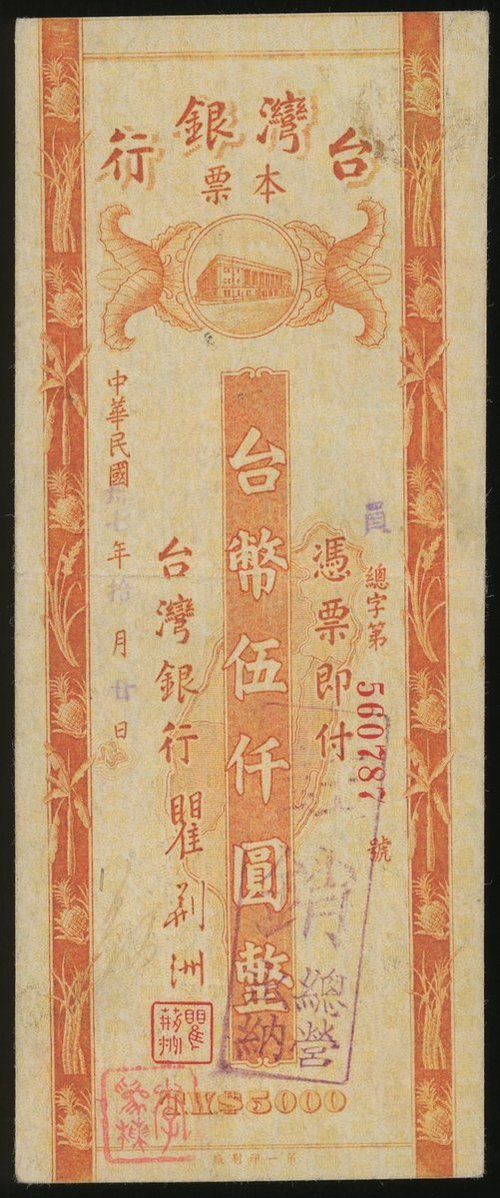 台灣銀行
本票
員
總字第560787號
憑票即付
台幣伍仟圓整
TW$5000
台灣銀行 瞿荆洲
瞿荆洲
中華民國卅七年拾月廿日
銷
總營
納
第一印刷廠